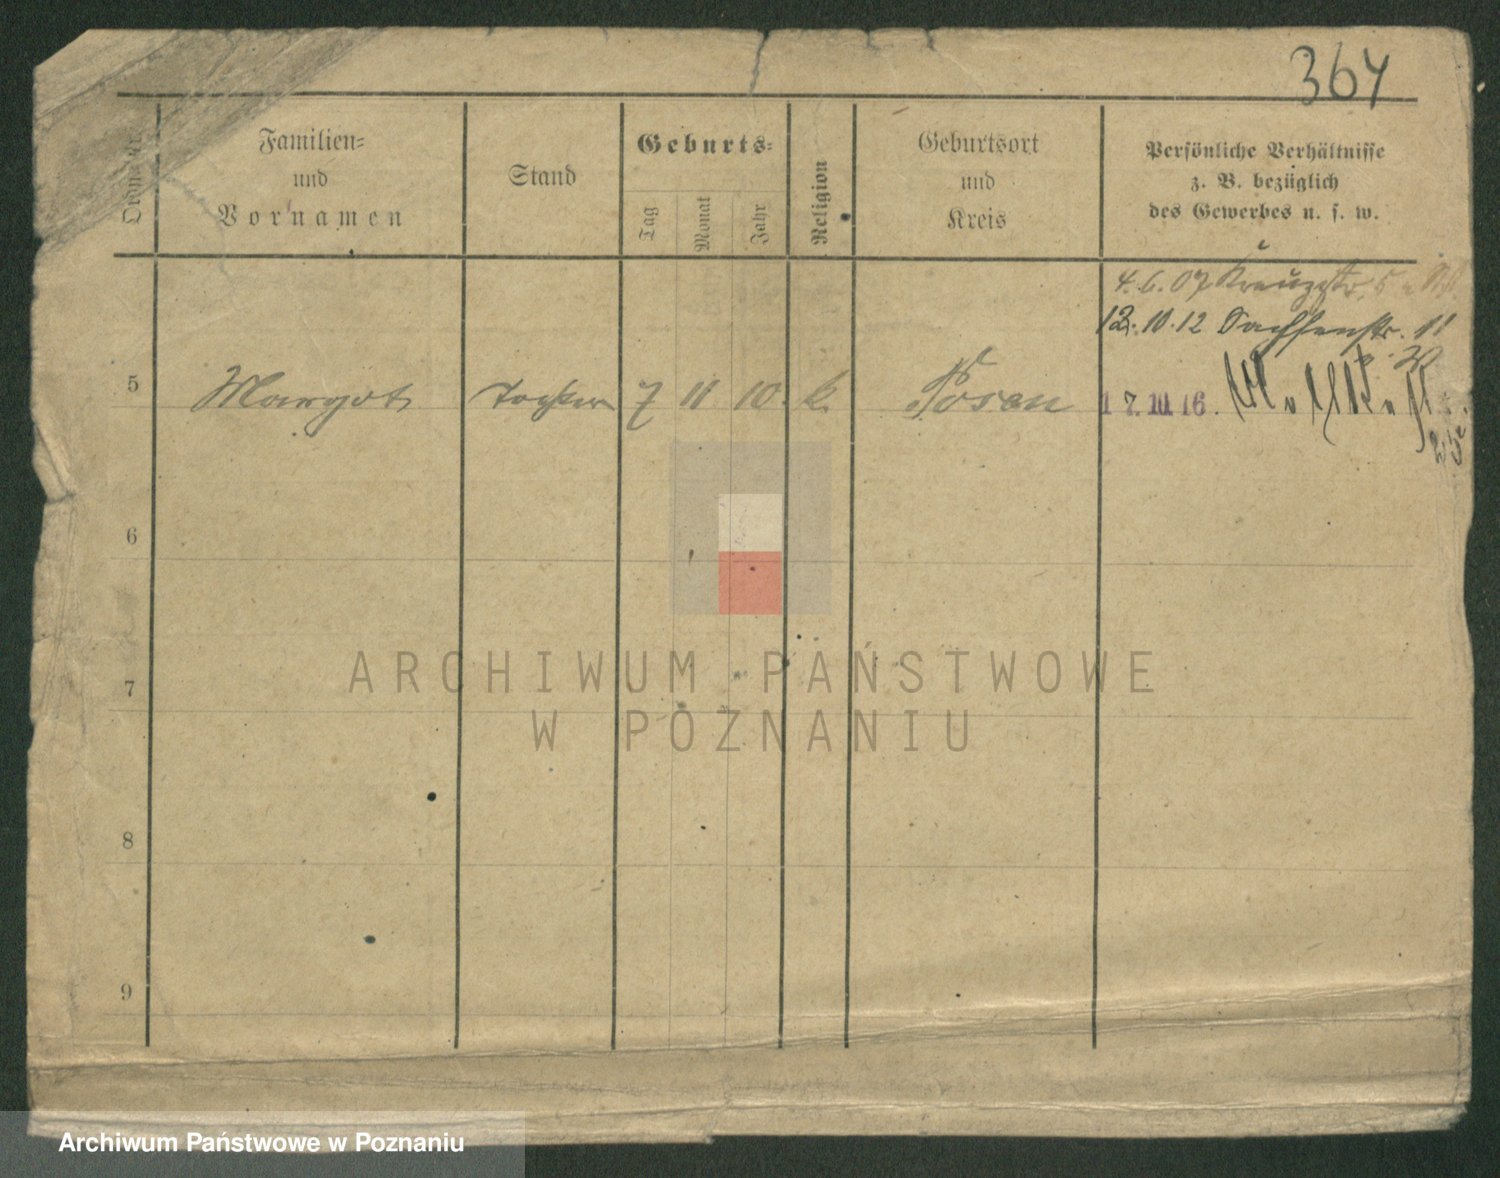 364
Familien=
und
Vornamen
Stand
Geburts=
Tag
Monat
Jahr
Religion
Geburtsort
und
Kreis
Persönliche Verhältnisse
z. B. bezüglich
des Gewerbes u. s. w.
4.6.07 Kreuzstr. 5
12.10.12 Sachsenstr. 11
5 Margot Tochter 7 11 10. k. Posen 17.10.16.
6
7
8
9
ARCHIWUM PAŃSTWOWE
W POZNANIU
Archiwum Państwowe w Poznaniu